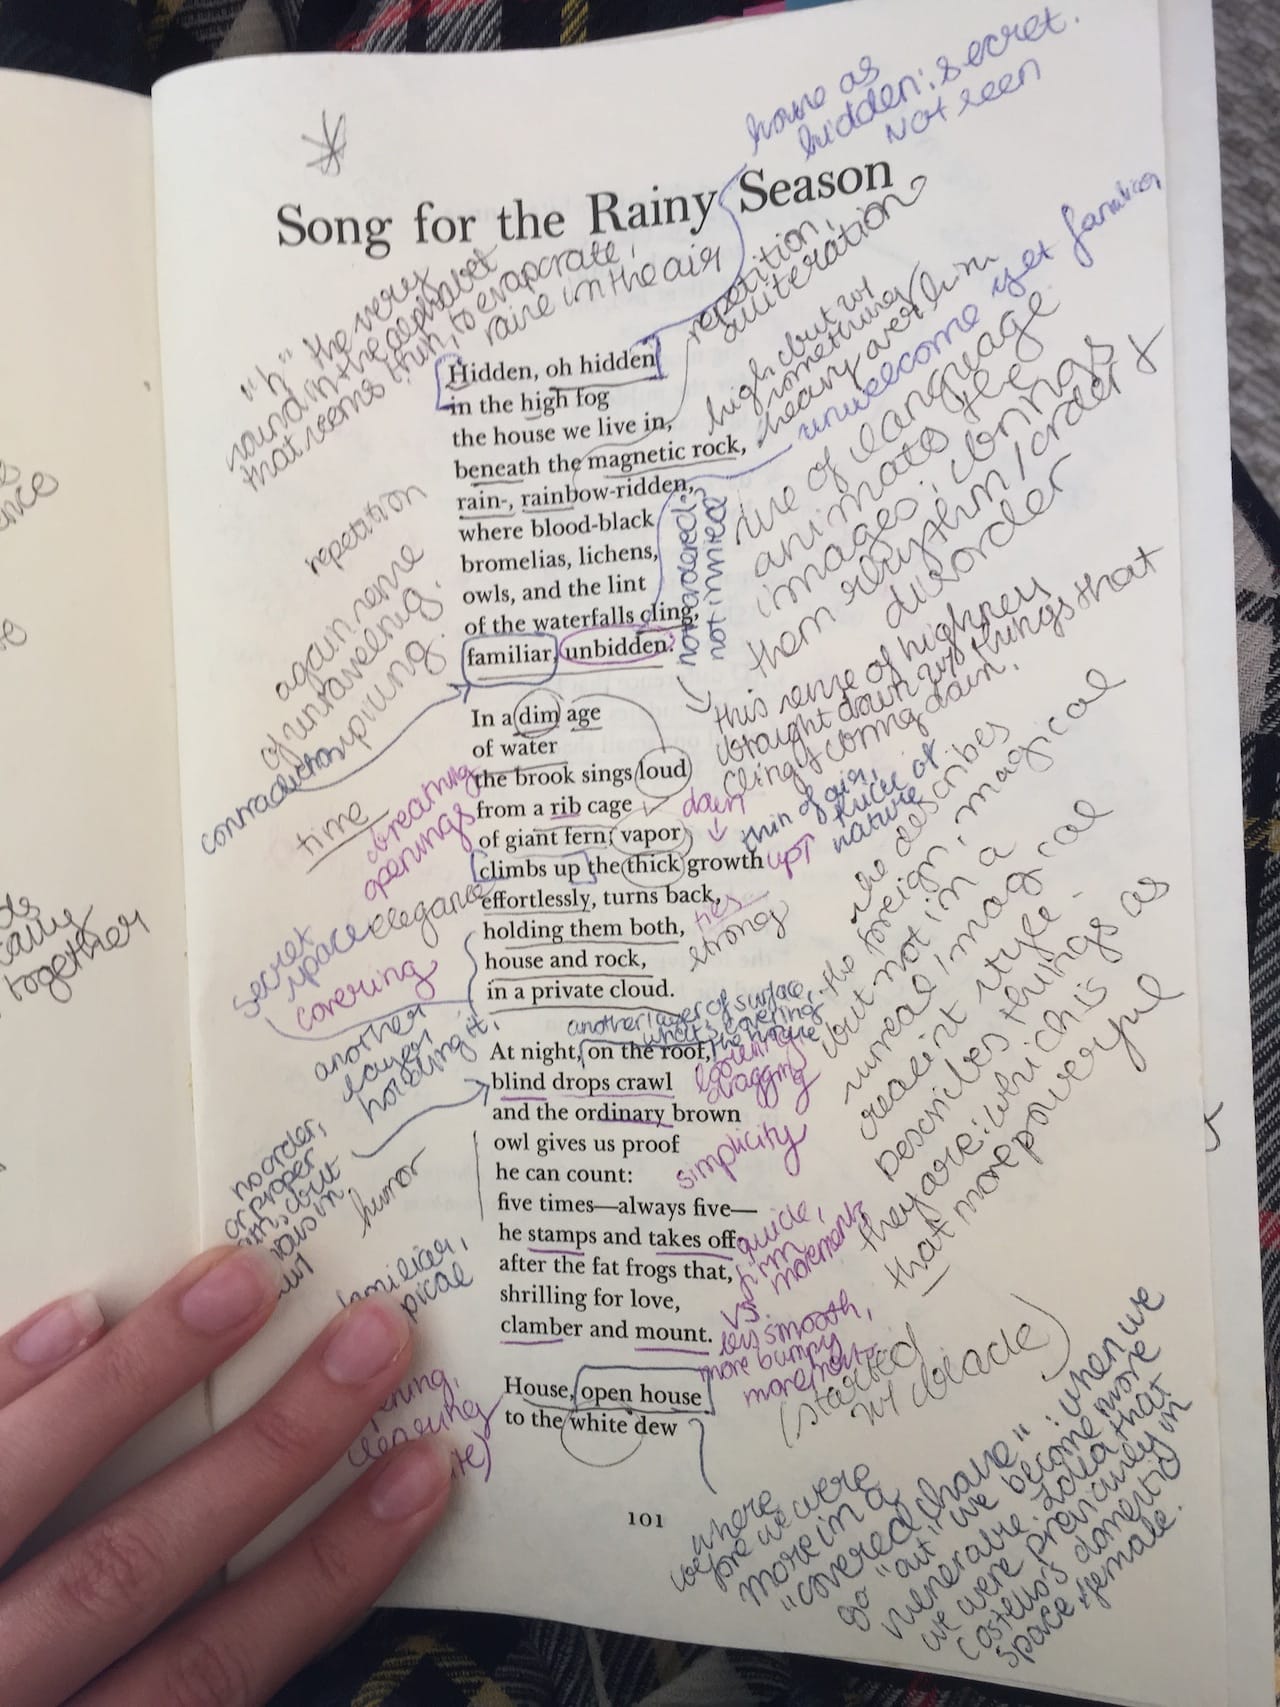 house as
hidden: secret.
Not seen
Song for the Rainy Season
"h" the very
sound in the alphabet
that seems thin, to evaporate,
raise in the air
repetition,
alliteration?
Hidden, oh hidden
in the high fog
the house we live in,
beneath the magnetic rock,
rain-, rainbow-ridden,
where blood-black
bromelias, lichens,
owls, and the lint
of the waterfalls cling,
familiar, unbidden.
high, but w/
something
heavy over him
unwelcome yet familiar
not ordered;
not invited
use of language
animates the
images; brings
them rhythm/order &
disorder
repetition
again sense
of unraveling.
spiraling.
contradiction
this sense of highness
brought down w/ things that
cling & coming down.
In a dim age
of water
the brook sings loud
from a rib cage
of giant fern; vapor
climbs up the thick growth
effortlessly, turns back,
holding them both,
house and rock,
in a private cloud.
time
breathing
openings
down
up
thin of air,
thick of
nature
elegance
secret
space
covering
ties
strong
another
layer
holding it.
another layer of surface,
what's covering
the house
she describes
the foreign, magical
but not in a
surreal/magical
realist style -
Describes things as
they are: which is
that more powerful
At night, on the roof,
blind drops crawl
and the ordinary brown
owl gives us proof
he can count:
five times—always five—
he stamps and takes off
after the fat frogs that,
shrilling for love,
clamber and mount.
dragging
no order,
or proper
but
humor
simplicity
familiar,
quick,
firm
movements
vs.
less smooth,
more bumpy
movements
(started
w/ blade)
House, open house
to the white dew
where
before we were
more in a
"covered
go "out" we become more
: when we
vulnerable. Idea that
we were previously in
Costello's domestic
space & female.
101
together